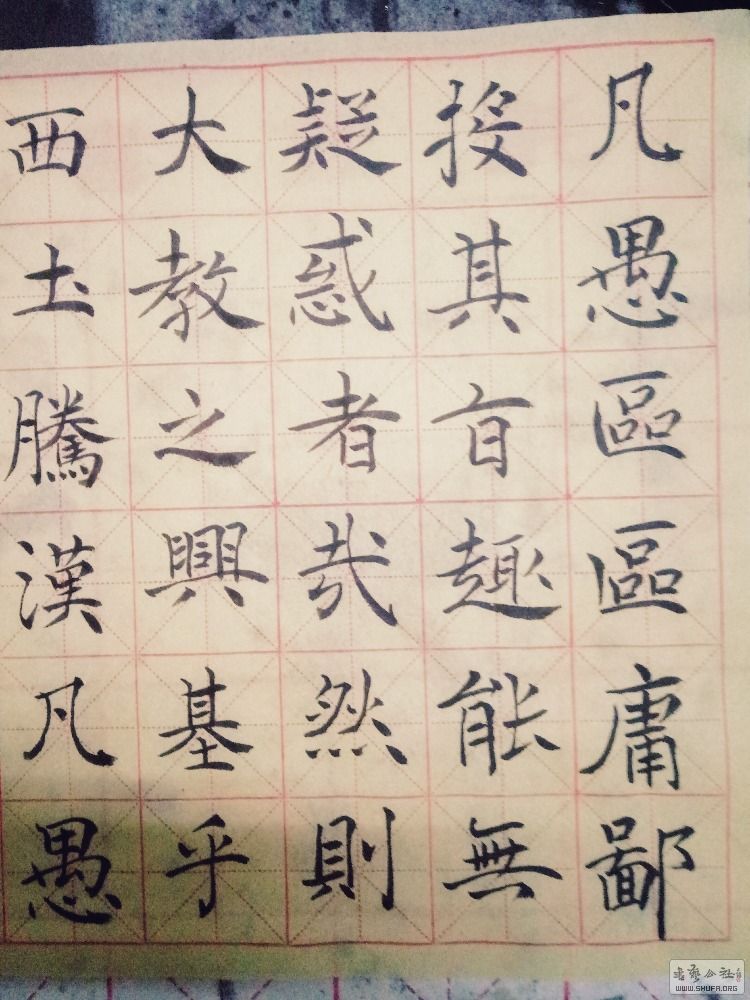 凡愚區區庸鄙
投其旨趣能無
疑惑者哉然則
大教之興基乎
西土騰漢凡愚
书艺公社
WWW.SHUFA.ORG